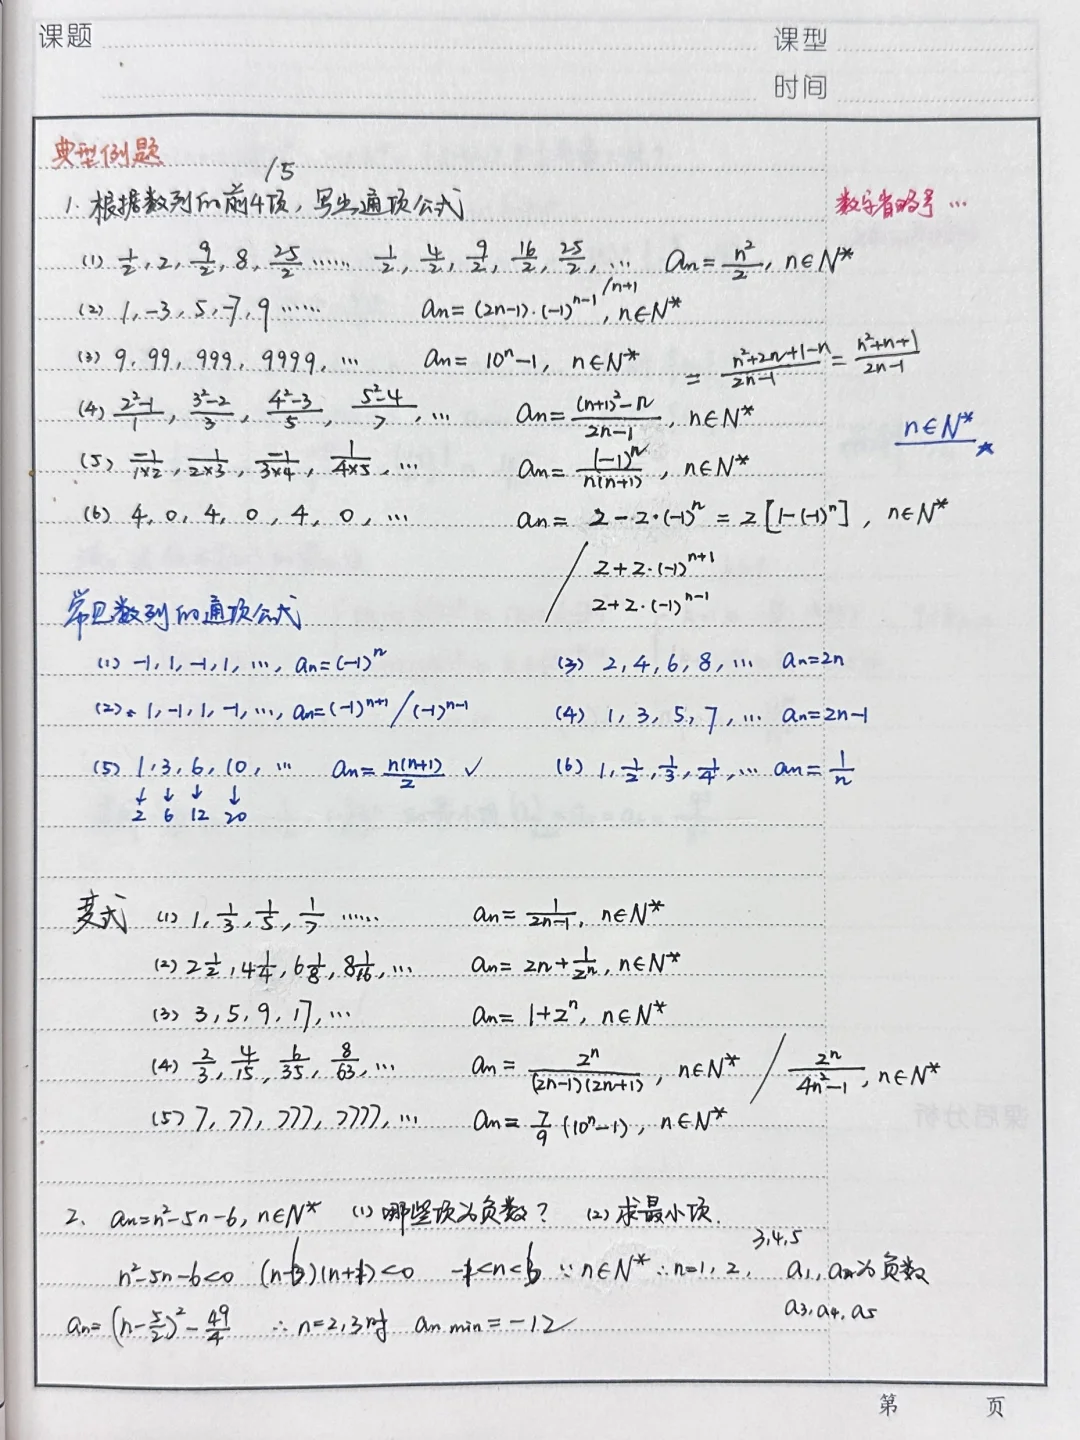 课题
课型
时间
典型例题
/5
1. 根据数列的前4项，写出通项公式
数字省略号 …
(1) 1/2, 2, 9/2, 8, 25/2 …… 1/2, 4/2, 9/2, 16/2, 25/2, … an = n²/2, n∈N*
(2) 1, -3, 5, -7, 9 …… an = (2n-1)·(-1)^(n-1) /n+1, n∈N*
(3) 9, 99, 999, 9999, … an = 10ⁿ-1, n∈N*
= (n²+2n+1-n)/(2n-1) = (n²+n+1)/(2n-1)
(4) (2²-1)/1, (3²-2)/3, (4²-3)/5, (5²-4)/7, … an = ((n+1)²-n)/(2n-1), n∈N*
n∈N* ★
(5) -1/(1×2), 1/(2×3), -1/(3×4), 1/(4×5), … an = (-1)ⁿ/(n(n+1)), n∈N*
(6) 4, 0, 4, 0, 4, 0, … an = 2-2·(-1)ⁿ = 2[1-(-1)ⁿ], n∈N*
/ 2+2·(-1)^(n+1)
2+2·(-1)^(n-1)
常见数列的通项公式
(1) -1, 1, -1, 1, …, an=(-1)ⁿ
(3) 2, 4, 6, 8, … an=2n
(2) 1, -1, 1, -1, …, an=(-1)^(n+1) / (-1)^(n-1)
(4) 1, 3, 5, 7, … an=2n-1
(5) 1, 3, 6, 10, … an = n(n+1)/2 ✓
(6) 1, 1/2, 1/3, 1/4, … an = 1/n
↓ ↓ ↓ ↓
2 6 12 20
变式 (1) 1, 1/3, 1/5, 1/7 …… an = 1/(2n-1), n∈N*
(2) 2 1/2, 4 1/4, 6 1/8, 8 1/16, … an = 2n+1/2ⁿ, n∈N*
(3) 3, 5, 9, 17, … an = 1+2ⁿ, n∈N*
(4) 2/3, 4/15, 6/35, 8/63, … an = 2n/((2n-1)(2n+1)), n∈N* / 2n/(4n²-1), n∈N*
(5) 7, 77, 777, 7777, … an = 7/9 (10ⁿ-1), n∈N*
2. an=n²-5n-6, n∈N* (1) 哪些项为负数? (2) 求最小项.
3,4,5
n²-5n-6<0 (n-6)(n+1)<0 -1<n<6 ∵n∈N* ∴n=1, 2, a1, a2为负数
a3, a4, a5
an=(n-5/2)²-49/4 ∴n=2,3时 an min=-12
第 页